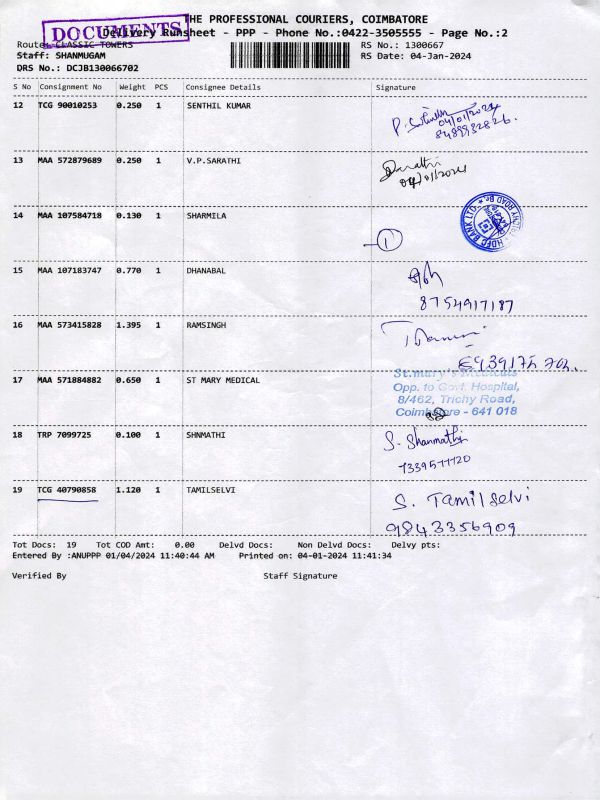 DOCUMENTS
THE PROFESSIONAL COURIERS, COIMBATORE
Delivery Runsheet - PPP - Phone No.:0422-3505555 - Page No.:2
Route: CLASSIC TOWERS RS No.: 1300667
Staff: SHANMUGAM RS Date: 04-Jan-2024
DRS No.: DCJB130066702
S No Consignment No Weight PCS Consignee Details Signature
12 TCG 90010253 0.250 1 SENTHIL KUMAR
04/01/2024
8489932826.
13 MAA 572879689 0.250 1 V.P.SARATHI Sarathi
04/01/2024
14 MAA 107584718 0.130 1 SHARMILA
HDFC BANK LTD.
1
15 MAA 107183747 0.770 1 DHANABAL
8754917187
16 MAA 573415828 1.395 1 RAMSINGH
17 MAA 571884882 0.650 1 ST MARY MEDICAL
St.mary's Medicals
Opp. to Govt. Hospital,
8/462, Trichy Road,
Coimbatore - 641 018
18 TRP 7099725 0.100 1 SHNMATHI S. Shanmathi
19 TCG 40790858 1.120 1 TAMILSELVI S. Tamilselvi
9843356909
Tot Docs: 19 Tot COD Amt: 0.00 Delvd Docs: Non Delvd Docs: Delvy pts:
Entered By :ANUPPP 01/04/2024 11:40:44 AM Printed on: 04-01-2024 11:41:34
Verified By Staff Signature